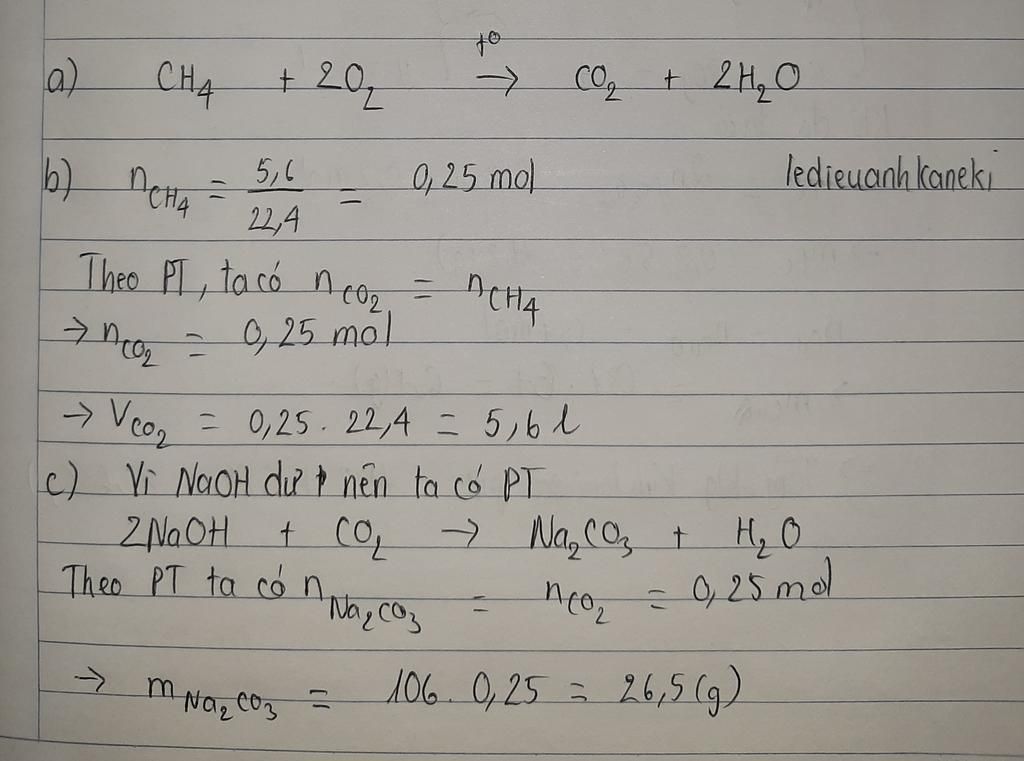 a) CH₄ + 2O₂ →(t⁰) CO₂ + 2H₂O
b) n CH₄ = 5,6/22,4 = 0,25 mol ledieuanhkaneki
Theo PT, ta có n CO₂ = n CH₄
→ n CO₂ = 0,25 mol
→ V CO₂ = 0,25 . 22,4 = 5,6 l
c) Vì NaOH dư nên ta có PT
2NaOH + CO₂ → Na₂CO₃ + H₂O
Theo PT ta có n Na₂CO₃ = n CO₂ = 0,25 mol
→ m Na₂CO₃ = 106 . 0,25 = 26,5 (g)